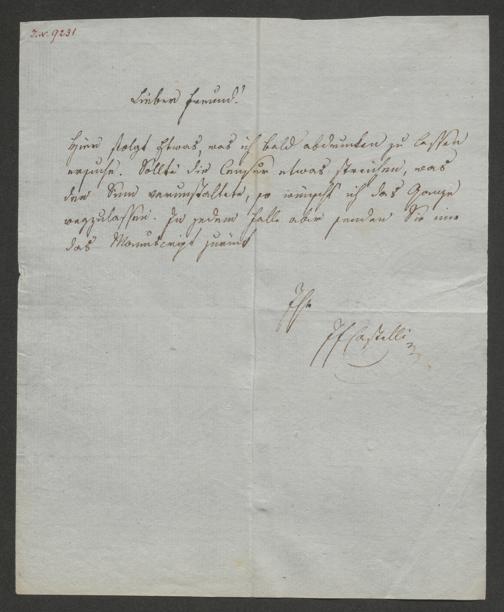 I.N. 9231
Lieber Freund!
Hier folgt Etwas, was ich bald abdrucken zu lassen
ersuche. Sollte die Censur etwas streichen, was
den Sinn verunstaltete, so wünscht ich das Ganze
wegzulassen. In jedem Falle aber senden Sie mir
das Manuscript zurück
Ihr
JFCastelli